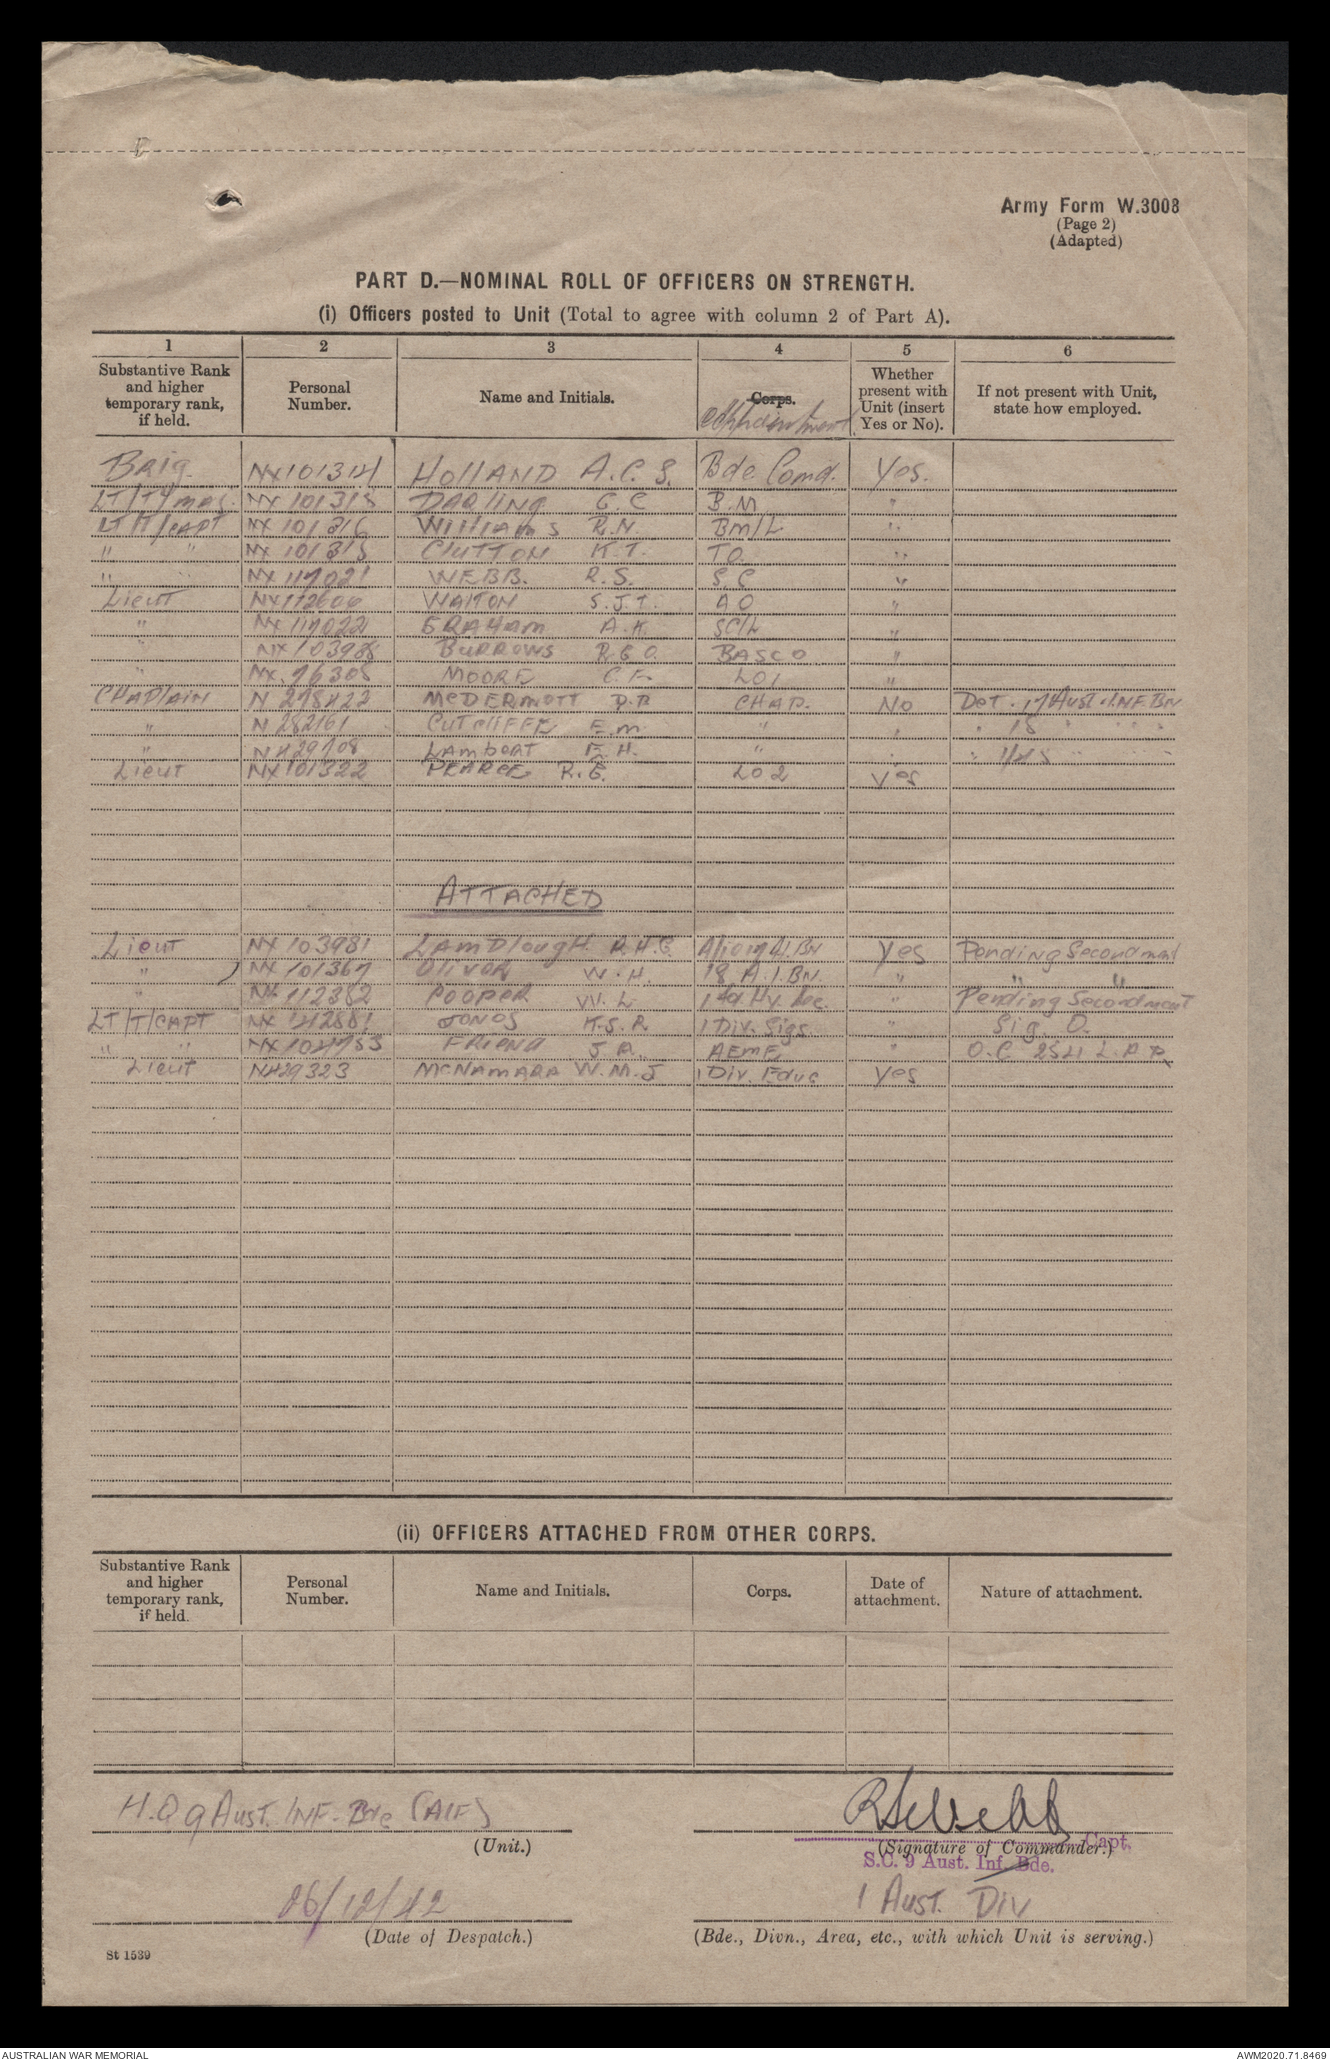 Army Form W.3008
(Page 2)
(Adapted)
PART D.—NOMINAL ROLL OF OFFICERS ON STRENGTH.
(i) Officers posted to Unit (Total to agree with column 2 of Part A).
1 2 3 4 5 6
Substantive Rank and higher temporary rank, if held. Personal Number. Name and Initials. Corps. Appointment Whether present with Unit (insert Yes or No). If not present with Unit, state how employed.
Brig. NX101314 HOLLAND A.C.S. Bde Comd. Yes.
LT/TY MAJ. NX 101318 DARLING G.C B.M "
LT/T/CAPT NX 101316 WILLIAMS R.N. BM/L "
" " NX 101315 CLUTTON K.T. TO "
" " NX 117021 WEBB. R.S. S.C "
Lieut NX112606 WALTON S.J.T. A O "
" NX 117022 GRAHAM A.K. SC/L "
" NX 103988 BURROWS R.G.O. BASCO "
" NX. 76305 MOORE C.F. LO1 "
CHAPLAIN N 278422 McDERMOTT D.P. CHAP. No Det. 17 Aust. INF. BN
" N 282161 CUTCLIFFE E.M. " " " 18 " " "
" N 429708 LAMBERT F.H. " " " 1/45
Lieut NX101322 PEARCE R.G. LO 2 yes
ATTACHED
Lieut NX 103981 LAMPLOUGH R.H.G. A/ Yes Pending Secondment
" NX 101367 OLIVER W.H. 18 A.I.BN. " " "
" NX 112352 COOPER W.L " Pending Secondment
LT/T/CAPT NX 142881 JONES K.S.R 1 Div. Sigs " Sig. O.
" " NX 104753 FRIEND J A. AEME " O.C 254 L.A.D.
Lieut N429323 MCNAMARA W.M.J 1 Div. Educ yes
(ii) OFFICERS ATTACHED FROM OTHER CORPS.
Substantive Rank and higher temporary rank, if held. Personal Number. Name and Initials. Corps. Date of attachment. Nature of attachment.
H.Q 9 Aust. INF. Bde (AIF)
(Unit.)
RSWebb
Capt.
(Signature of Commander.)
S.C. 9 Aust. Inf. Bde.
26/12/42
1 Aust. Div
(Date of Despatch.)
(Bde., Divn., Area, etc., with which Unit is serving.)
St 1539
AUSTRALIAN WAR MEMORIAL
AWM2020.71.8469